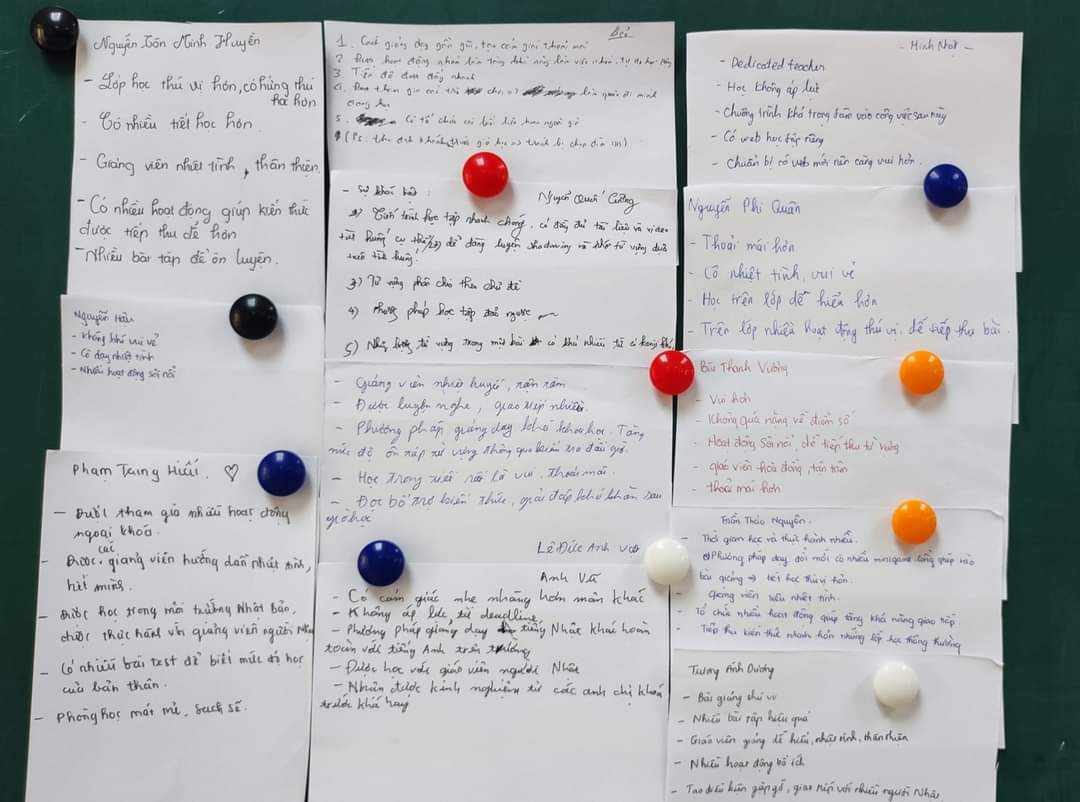 Nguyễn Tôn Minh Huyền
- Lớp học thú vị hơn, có hứng thú
học hơn
- Có nhiều tiết học hơn.
- Giảng viên nhiệt tình, thân thiện.
- Có nhiều hoạt động giúp kiến thức
được tiếp thu dễ hơn
- Nhiều bài tập để ôn luyện.
Nguyễn Hữu
- Không khí vui vẻ
- Cô dạy nhiệt tình
- Nhiều hoạt động sôi nổi
Phạm Trung Hiếu. ♡
- Được tham gia nhiều hoạt động
ngoại khóa.
- Được các giảng viên hướng dẫn nhiệt tình,
hết mình.
- Được học trong môi trường Nhật Bản,
được thực hành với giảng viên người Nhật
- Có nhiều bài test để biết mức độ học
của bản thân.
- Phòng học mát mẻ, sạch sẽ.
1. Cách giảng dạy gần gũi, tạo cảm giác thoải mái
2.
3.
4.
5. Có tổ chức
- Sự khác biệt: Nguyễn Quốc Cường
học tập nhanh chóng, có đầy đủ tài liệu và video
tình huống cụ thể dễ dàng luyện shadowing và từ vựng dựa
trên tình huống.
3) Từ vựng phân chia theo chủ đề
4) Phương pháp học tập đảo ngược
5) từ vựng trong một bài khá nhiều
- Giảng viên nhiệt huyết, tận tâm
- Được luyện nghe, giao tiếp nhiều.
- Phương pháp giảng dạy khá khoa học. Tăng
mức độ ôn tập từ vựng thông qua kiểm tra đầu giờ.
- Học trong rất là vui, thoải mái.
- Đọc bổ trợ kiến thức, giải đáp khó khăn sau
giờ học
Lê Đức Anh
Anh Vũ
- Có cảm giác nhẹ nhàng hơn môn khác
- Không áp lực từ deadline
- Phương pháp giảng dạy tiếng Nhật khác hoàn
toàn với tiếng Anh trên trường
- Được học với giáo viên người Nhật
- Nhận được kinh nghiệm từ các anh chị khoá
trước khá hay
- Minh Nhật -
- Dedicated teacher
- Học không áp lực
- Chương trình khá trọng tâm vào công việc sau này
- Có web học tập riêng
- Chuẩn bị có web mới nên càng vui hơn.
Nguyễn Phi Quân
- Thoải mái hơn
- Cô nhiệt tình, vui vẻ
- Học trên lớp dễ hiểu hơn
- Trên lớp nhiều hoạt động thú vị, dễ tiếp thu bài.
Bùi Thanh Vương
- Vui hơn
- Không quá nặng về điểm số
- Hoạt động sôi nổi, dễ tiếp thu từ vựng
- giáo viên hòa đồng, tận tâm
- thoải mái hơn
Trần Thảo Nguyên.
- Thời gian học và thực hành nhiều.
- Phương pháp dạy đổi mới có nhiều minigame lồng ghép vào
bài giảng → tiết học thú vị hơn.
- Giảng viên siêu nhiệt tình.
- Tổ chức nhiều hoạt động giúp tăng khả năng giao tiếp
- Tiếp thu kiến thức nhanh hơn những lớp học thông thường
Trương Ánh Dương
- Bài giảng thú vị
- Nhiều bài tập hiệu quả
- Giáo viên giảng dễ hiểu, nhiệt tình, thân thiện
- Nhiều hoạt động bổ ích
- Tạo điều kiện gặp gỡ, giao tiếp với nhiều người Nhật